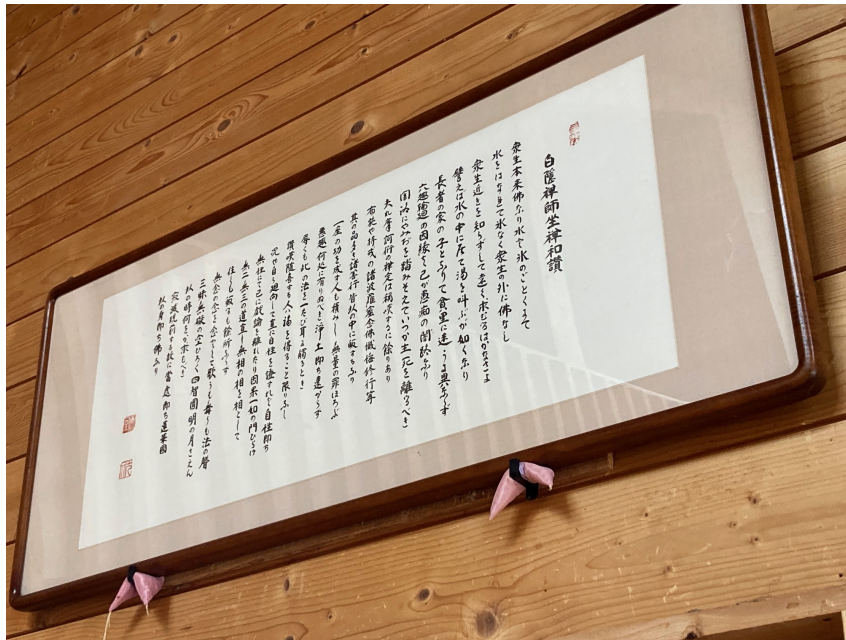 白隠禅師坐禅和讃
衆生本来佛なり水と氷のごとくにて
水をはなれて氷なく衆生の外に佛なし
衆生近きを知らずして遠く求むるはかなさよ
譬えば水の中に居て渇を叫ぶが如くなり
長者の家の子となりて貧里に迷うに異ならず
六趣輪廻の因縁は己が愚痴の闇路なり
闇路にやみぢを踏みそえていつか生死を離るべき
夫れ摩訶衍の禅定は稱嘆するに餘りあり
布施や持戒の諸波羅蜜念佛懺悔修行等
其の品多き諸善行皆此の中に皈するなり
一座の功を成す人も積みし無量の罪ほろぶ
悪趣何処に有りぬべき浄土即ち遠からず
辱くも此の法を一たび耳に觸るるとき
讃嘆随喜する人は福を得ること限りなし
況や自ら廻向して直に自性を證すれば自性即ち
無性にて已に戯論を離れたり因果一如の門ひらけ
無二無三の道直し無相の相を相として
往くも皈るも餘所ならず
無念の念を念として歌うも舞うも法の聲
三昧無礙の空ひろく四智圓明の月さえん
此の時何をか求むべき
寂滅現前する故に當處即ち蓮華國
此の身即ち佛なり